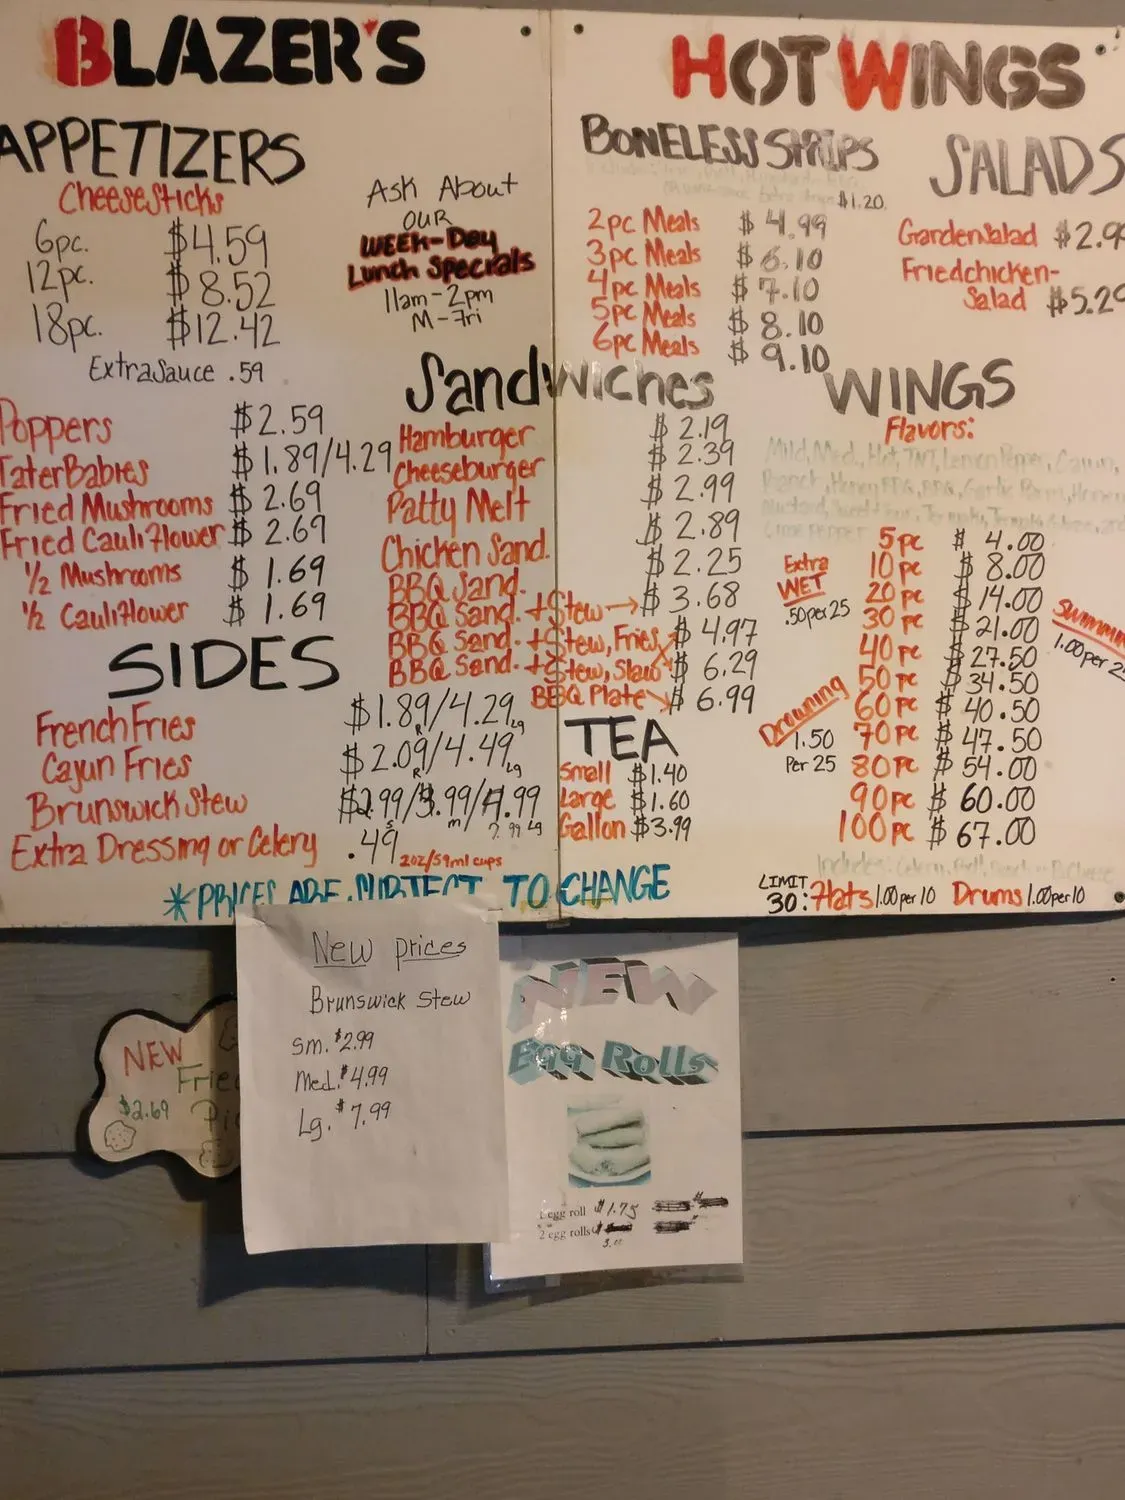 BLAZER'S
HOT WINGS
APPETIZERS
CheeseSticks
6pc. $4.59
12pc. $8.52
18pc. $12.42
ExtraSauce .59
Ask About
our
WEEK-Day
Lunch Specials
11am-2pm
M-Fri
Poppers $2.59
TaterBabies $1.89/4.29
Fried Mushrooms $2.69
Fried Cauliflower $2.69
1/2 Mushrooms $1.69
1/2 Cauliflower $1.69
SIDES
French Fries $1.89/4.29 Lg
Cajun Fries $2.09/4.49 Lg
R
Brunswick Stew
Extra Dressing or Celery .49 2oz/59ml cups
Sandwiches
Hamburger $2.19
Cheeseburger $2.39
Patty Melt $2.99
Chicken Sand. $2.89
BBQ Sand. $2.25
BBQ Sand. + Stew → $3.68
BBQ Sand. + Stew, Fries $4.97
BBQ Sand. + Stew, Slaw $6.29
BBQ Plate $6.99
TEA
Small $1.40
Large $1.60
Gallon $3.99
BONELESS STRIPS
$1.20
2pc Meals $4.99
3pc Meals $6.10
4pc Meals $7.10
5pc Meals $8.10
6pc Meals $9.10
SALADS
GardenSalad $2.9
Friedchicken-
Salad $5.2
WINGS
Flavors:
Mild, Med., Hot, TNT, Lemon Pepper, Cajun,
Ranch, Honey BBQ, BBQ, Garlic Parm, Honey
5pc $4.00
10pc $8.00
20pc $14.00
30pc $21.00
40pc $27.50
50pc $34.50
60pc $40.50
70pc $47.50
80pc $54.00
90pc $60.00
100pc $67.00
Extra
WET
.50 per 25
Swimmin
1.00 per 2
Drowning
1.50
Per 25
LIMIT
30: Flats 1.00 per 10 Drums 1.00 per 10
*PRICES ARE SUBJECT TO CHANGE
New prices
Brunswick Stew
Sm. $2.99
Med. $4.99
Lg. $7.99
NEW
Egg Rolls
egg roll $1.75
2 egg rolls
3.00
NEW
Frie
$2.69 Pi